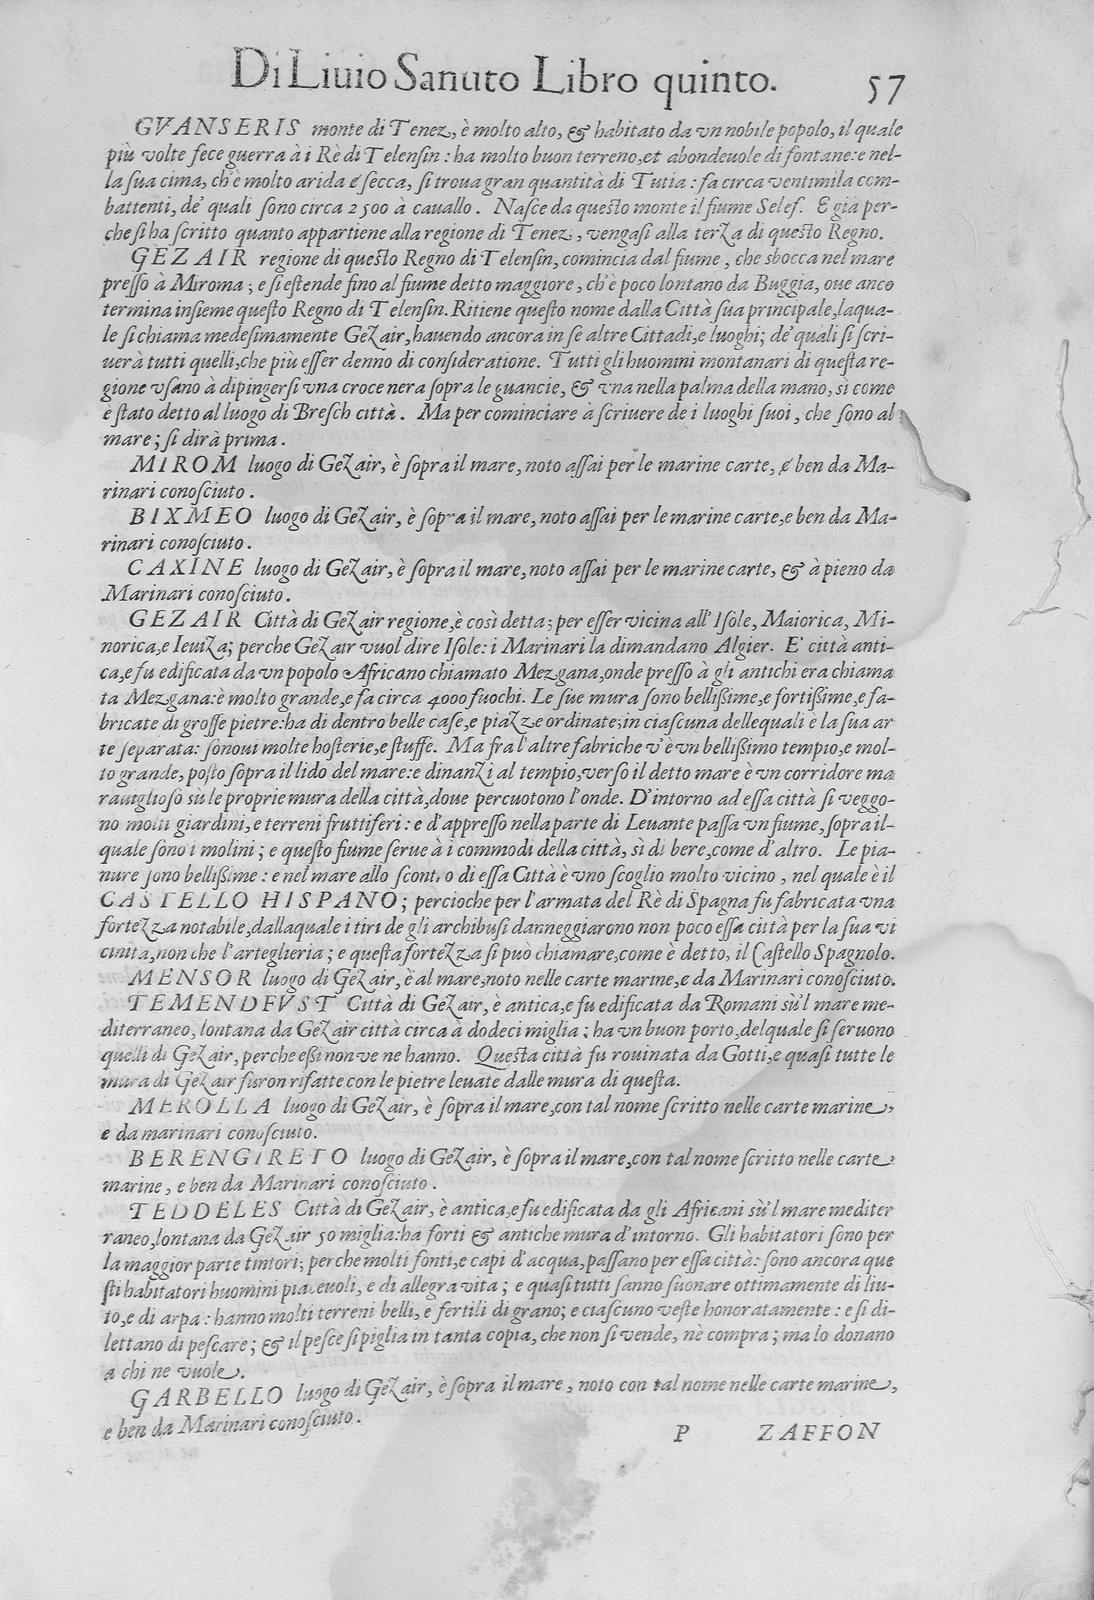 Di Liuio Sanuto Libro quinto. 57
GVANSERIS monte di Tenez, è molto alto, & habitato da vn nobile popolo, il quale
più volte fece guerra à i Rè di Telensin: ha molto buon terreno, et abondeuole di fontane: e nel-
la sua cima, ch'è molto arida é secca, si troua gran quantità di Tutia: fa circa ventimila com-
battenti, de' quali sono circa 2500 à cauallo. Nasce da questo monte il fiume Selef. E già per-
che si ha scritto quanto appartiene alla regione di Tenez, vengasi alla terza di questo Regno.
GEZAIR regione di questo Regno di Telensin, comincia dal fiume, che sbocca nel mare
presso à Miroma; e si estende fino al fiume detto maggiore, ch'è poco lontano da Buggia, oue anco
termina insieme questo Regno di Telensin. Ritiene questo nome dalla Città sua principale, laqua-
le si chiama medesimamente Gezair, hauendo ancora in se altre Cittadi, e luoghi; de' quali si scri-
uerà tutti quelli, che più esser denno di consideratione. Tutti gli huomini montanari di questa re-
gione vsano à dipingersi vna croce nera sopra le guancie, & vna nella palma della mano, sì come
è stato detto al luogo di Bresch città. Ma per cominciare à scriuere de i luoghi suoi, che sono al
mare; si dirà prima.
MIROM luogo di Gezair, è sopra il mare, noto assai per le marine carte, é ben da Ma-
rinari conosciuto.
BIXMEO luogo di Gezair, è sopra il mare, noto assai per le marine carte, e ben da Ma-
rinari conosciuto.
CAXINE luogo di Gezair, è sopra il mare, noto assai per le marine carte, & à pieno da
Marinari conosciuto.
GEZAIR Città di Gezair regione, è così detta; per esser vicina all' Isole, Maiorica, Mi-
norica, e Ieuiza; perche Gezair vuol dire Isole: i Marinari la dimandano Algier. E' città anti-
ca, e fu edificata da vn popolo Africano chiamato Mezgana, onde presso à gli antichi era chiama
ta Mezgana: è molto grande, e fa circa 4000 fuochi. Le sue mura sono bellißime, e fortißime, e fa-
bricate di grosse pietre: ha di dentro belle case, e piazze ordinate; in ciascuna dellequali è la sua ar
te separata: sonoui molte hosterie, e stuffe. Ma fra l'altre fabriche v'è vn bellißimo tempio, e mol-
to grande, posto sopra il lido del mare: e dinanzi al tempio, verso il detto mare è vn corridore ma
rauiglioso sù le proprie mura della città, doue percuotono l'onde. D'intorno ad essa città si veggo-
no molti giardini, e terreni fruttiferi: e d'appresso nella parte di Leuante passa vn fiume, sopra il-
quale sono i molini; e questo fiume serue à i commodi della città, sì di bere, come d'altro. Le pia-
nure sono bellißime: e nel mare allo scontro di essa Città è vno scoglio molto vicino, nel quale è il
CASTELLO HISPANO; percioche per l'armata del Rè di Spagna fu fabricata vna
fortezza notabile, dallaquale i tiri de gli archibusi danneggiarono non poco essa città per la sua vi
cinità, non che l'arteglieria; e questa fortezza si può chiamare, come è detto, il Castello Spagnolo.
MENSOR luogo di Gezair, è al mare, noto nelle carte marine, e da Marinari conosciuto.
TEMENDFVST Città di Gezair, è antica, e fu edificata da Romani sù'l mare me-
diterraneo, lontana da Gezair città circa à dodeci miglia; ha vn buon porto, del quale si seruono
quelli di Gezair, perche eßi non ve ne hanno. Questa città fu rouinata da Gotti, e quasi tutte le
mura di Gezair furon rifatte con le pietre leuate dalle mura di questa.
MEROLLA luogo di Gezair, è sopra il mare, con tal nome scritto nelle carte marine,
e da marinari conosciuto.
BERENGIRETO luogo di Gezair, è sopra il mare, con tal nome scritto nelle carte
marine, e ben da Marinari conosciuto.
TEDDELES Città di Gezair, è antica, e fu edificata da gli Africani sù'l mare mediter
raneo, lontana da Gezair 50 miglia: ha forti & antiche mura d'intorno. Gli habitatori sono per
la maggior parte tintori; perche molti fonti, e capi d'acqua, passano per essa città: sono ancora que
sti habitatori huomini piaceuoli, e di allegra vita; e quasi tutti sanno suonare ottimamente di liu-
to, e di arpa: hanno molti terreni belli, e fertili di grano; e ciascuno veste honoratamente: e si di-
lettano di pescare; & il pesce si piglia in tanta copia, che non si vende, nè compra; ma lo donano
a chi ne vuole.
GARBELLO luogo di Gezair, è sopra il mare, noto con tal nome nelle carte marine,
e ben da Marinari conosciuto.
P ZAFFON